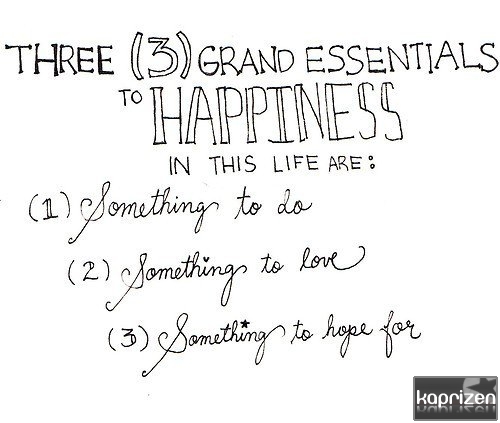 THREE (3) GRAND ESSENTIALS
TO HAPPINESS
IN THIS LIFE ARE:
(1) Something to do
(2) Something to love
(3) Something to hope for
kaprizen